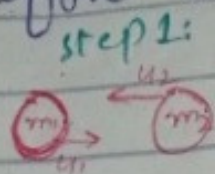 step 1:
u₂
m₁ m₂
u₁